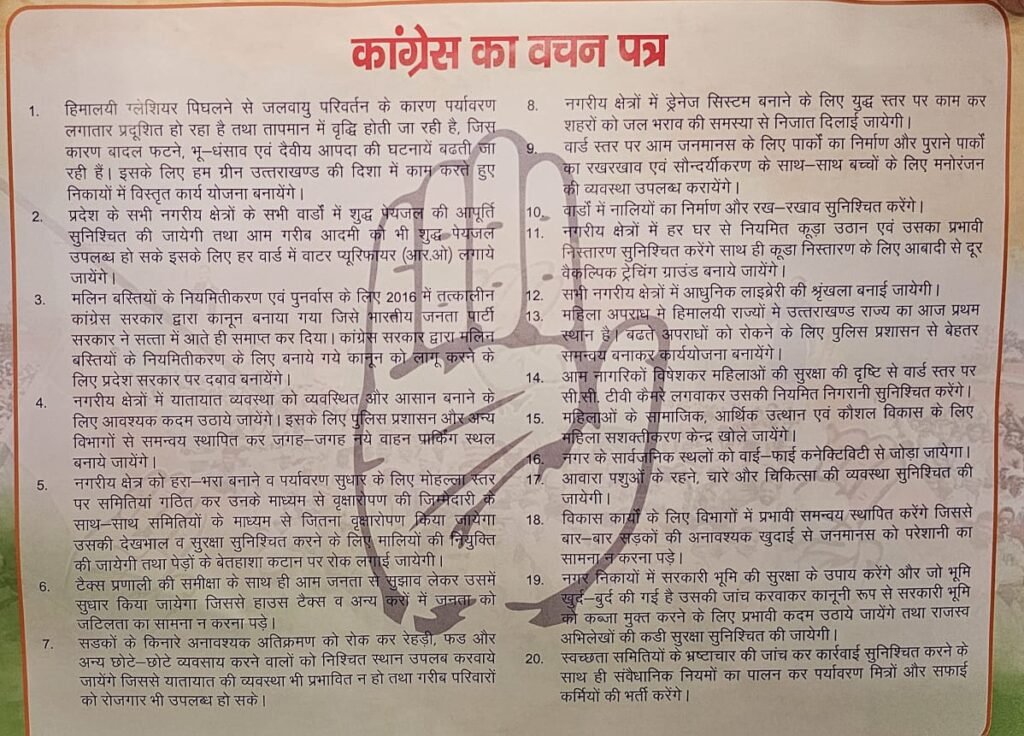 कांग्रेस का वचन पत्र
1. हिमालयी ग्लेशियर पिघलने से जलवायु परिवर्तन के कारण पर्यावरण
लगातार प्रदूशित हो रहा है तथा तापमान में वृद्धि होती जा रही है, जिस
कारण बादल फटने, भू–धंसाव एवं दैवीय आपदा की घटनायें बढती जा
रही हैं। इसके लिए हम ग्रीन उत्तराखण्ड की दिशा में काम करते हुए
निकायों में विस्तृत कार्य योजना बनायेंगे।
2. प्रदेश के सभी नगरीय क्षेत्रों के सभी वार्डों में शुद्ध पेयजल की आपूर्ति
सुनिश्चित की जायेगी तथा आम गरीब आदमी को भी शुद्ध पेयजल
उपलब्ध हो सके इसके लिए हर वार्ड में वाटर प्यूरिफायर (आर.ओ) लगाये
जायेंगे।
3. मलिन बस्तियों के नियमितीकरण एवं पुनर्वास के लिए 2016 में तत्कालीन
कांग्रेस सरकार द्वारा कानून बनाया गया जिसे भारतीय जनता पार्टी
सरकार ने सत्ता में आते ही समाप्त कर दिया। कांग्रेस सरकार द्वारा मलिन
बस्तियों के नियमितीकरण के लिए बनाये गये कानून को लागू करने के
लिए प्रदेश सरकार पर दबाव बनायेंगे।
4. नगरीय क्षेत्रों में यातायात व्यवस्था को व्यवस्थित और आसान बनाने के
लिए आवश्यक कदम उठाये जायेंगे। इसके लिए पुलिस प्रशासन और अन्य
विभागों से समन्वय स्थापित कर जगह–जगह नये वाहन पार्किंग स्थल
बनाये जायेंगे।
5. नगरीय क्षेत्र को हरा–भरा बनाने व पर्यावरण सुधार के लिए मोहल्ला स्तर
पर समितियां गठित कर उनके माध्यम से वृक्षारोपण की जिम्मेदारी के
साथ–साथ समितियों के माध्यम से जितना वृक्षारोपण किया जायेगा
उसकी देखभाल व सुरक्षा सुनिश्चित करने के लिए मालियों की नियुक्ति
की जायेगी तथा पेड़ों के बेतहाशा कटान पर रोक लगाई जायेगी।
6. टैक्स प्रणाली की समीक्षा के साथ ही आम जनता से सुझाव लेकर उसमें
सुधार किया जायेगा जिससे हाउस टैक्स व अन्य करों में जनता को
जटिलता का सामना न करना पड़े।
7. सडकों के किनारे अनावश्यक अतिक्रमण को रोक कर रेहड़ी, फड और
अन्य छोटे–छोटे व्यवसाय करने वालों को निश्चित स्थान उपलब करवाये
जायेंगे जिससे यातायात की व्यवस्था भी प्रभावित न हो तथा गरीब परिवारों
को रोजगार भी उपलब्ध हो सके।
8. नगरीय क्षेत्रों में ड्रेनेज सिस्टम बनाने के लिए युद्ध स्तर पर काम कर
शहरों को जल भराव की समस्या से निजात दिलाई जायेगी।
9. वार्ड स्तर पर आम जनमानस के लिए पार्को का निर्माण और पुराने पार्को
का रखरखाव एवं सौन्दर्यीकरण के साथ–साथ बच्चों के लिए मनोरंजन
की व्यवस्था उपलब्ध करायेंगे।
10. वार्डों में नालियों का निर्माण और रख–रखाव सुनिश्चित करेंगे।
11. नगरीय क्षेत्रों में हर घर से नियमित कूड़ा उठान एवं उसका प्रभावी
निस्तारण सुनिश्चित करेंगे साथ ही कूडा निस्तारण के लिए आबादी से दूर
वैकल्पिक ट्रेचिंग ग्राउंड बनाये जायेंगे।
12. सभी नगरीय क्षेत्रों में आधुनिक लाइब्रेरी की श्रृंखला बनाई जायेगी।
13. महिला अपराध मे हिमालयी राज्यों मे उत्तराखण्ड राज्य का आज प्रथम
स्थान है। बढते अपराधों को रोकने के लिए पुलिस प्रशासन से बेहतर
समन्वय बनाकर कार्ययोजना बनायेंगे।
14. आम नागरिकों विषेशकर महिलाओं की सुरक्षा की दृष्टि से वार्ड स्तर पर
सी.सी. टीवी कैमरे लगवाकर उसकी नियमित निगरानी सुनिश्चित करेंगे।
15. महिलाओं के सामाजिक, आर्थिक उत्थान एवं कौशल विकास के लिए
महिला सशक्तीकरण केन्द्र खोले जायेंगे।
16. नगर के सार्वजनिक स्थलों को वाई–फाई कनेक्टिविटी से जोड़ा जायेगा।
17. आवारा पशुओं के रहने, चारे और चिकित्सा की व्यवस्था सुनिश्चित की
जायेगी।
18. विकास कार्यों के लिए विभागों में प्रभावी समन्वय स्थापित करेंगे जिससे
बार–बार सड़कों की अनावश्यक खुदाई से जनमानस को परेशानी का
सामना न करना पड़े।
19. नगर निकायों में सरकारी भूमि की सुरक्षा के उपाय करेंगे और जो भूमि
खुर्द–बुर्द की गई है उसकी जांच करवाकर कानूनी रूप से सरकारी भूमि
को कब्जा मुक्त करने के लिए प्रभावी कदम उठाये जायेंगे तथा राजस्व
अभिलेखों की कडी सुरक्षा सुनिश्चित की जायेगी।
20. स्वच्छता समितियों के भ्रष्टाचार की जांच कर कार्रवाई सुनिश्चित करने के
साथ ही संवैधानिक नियमों का पालन कर पर्यावरण मित्रों और सफाई
कर्मियों की भर्ती करेंगे।